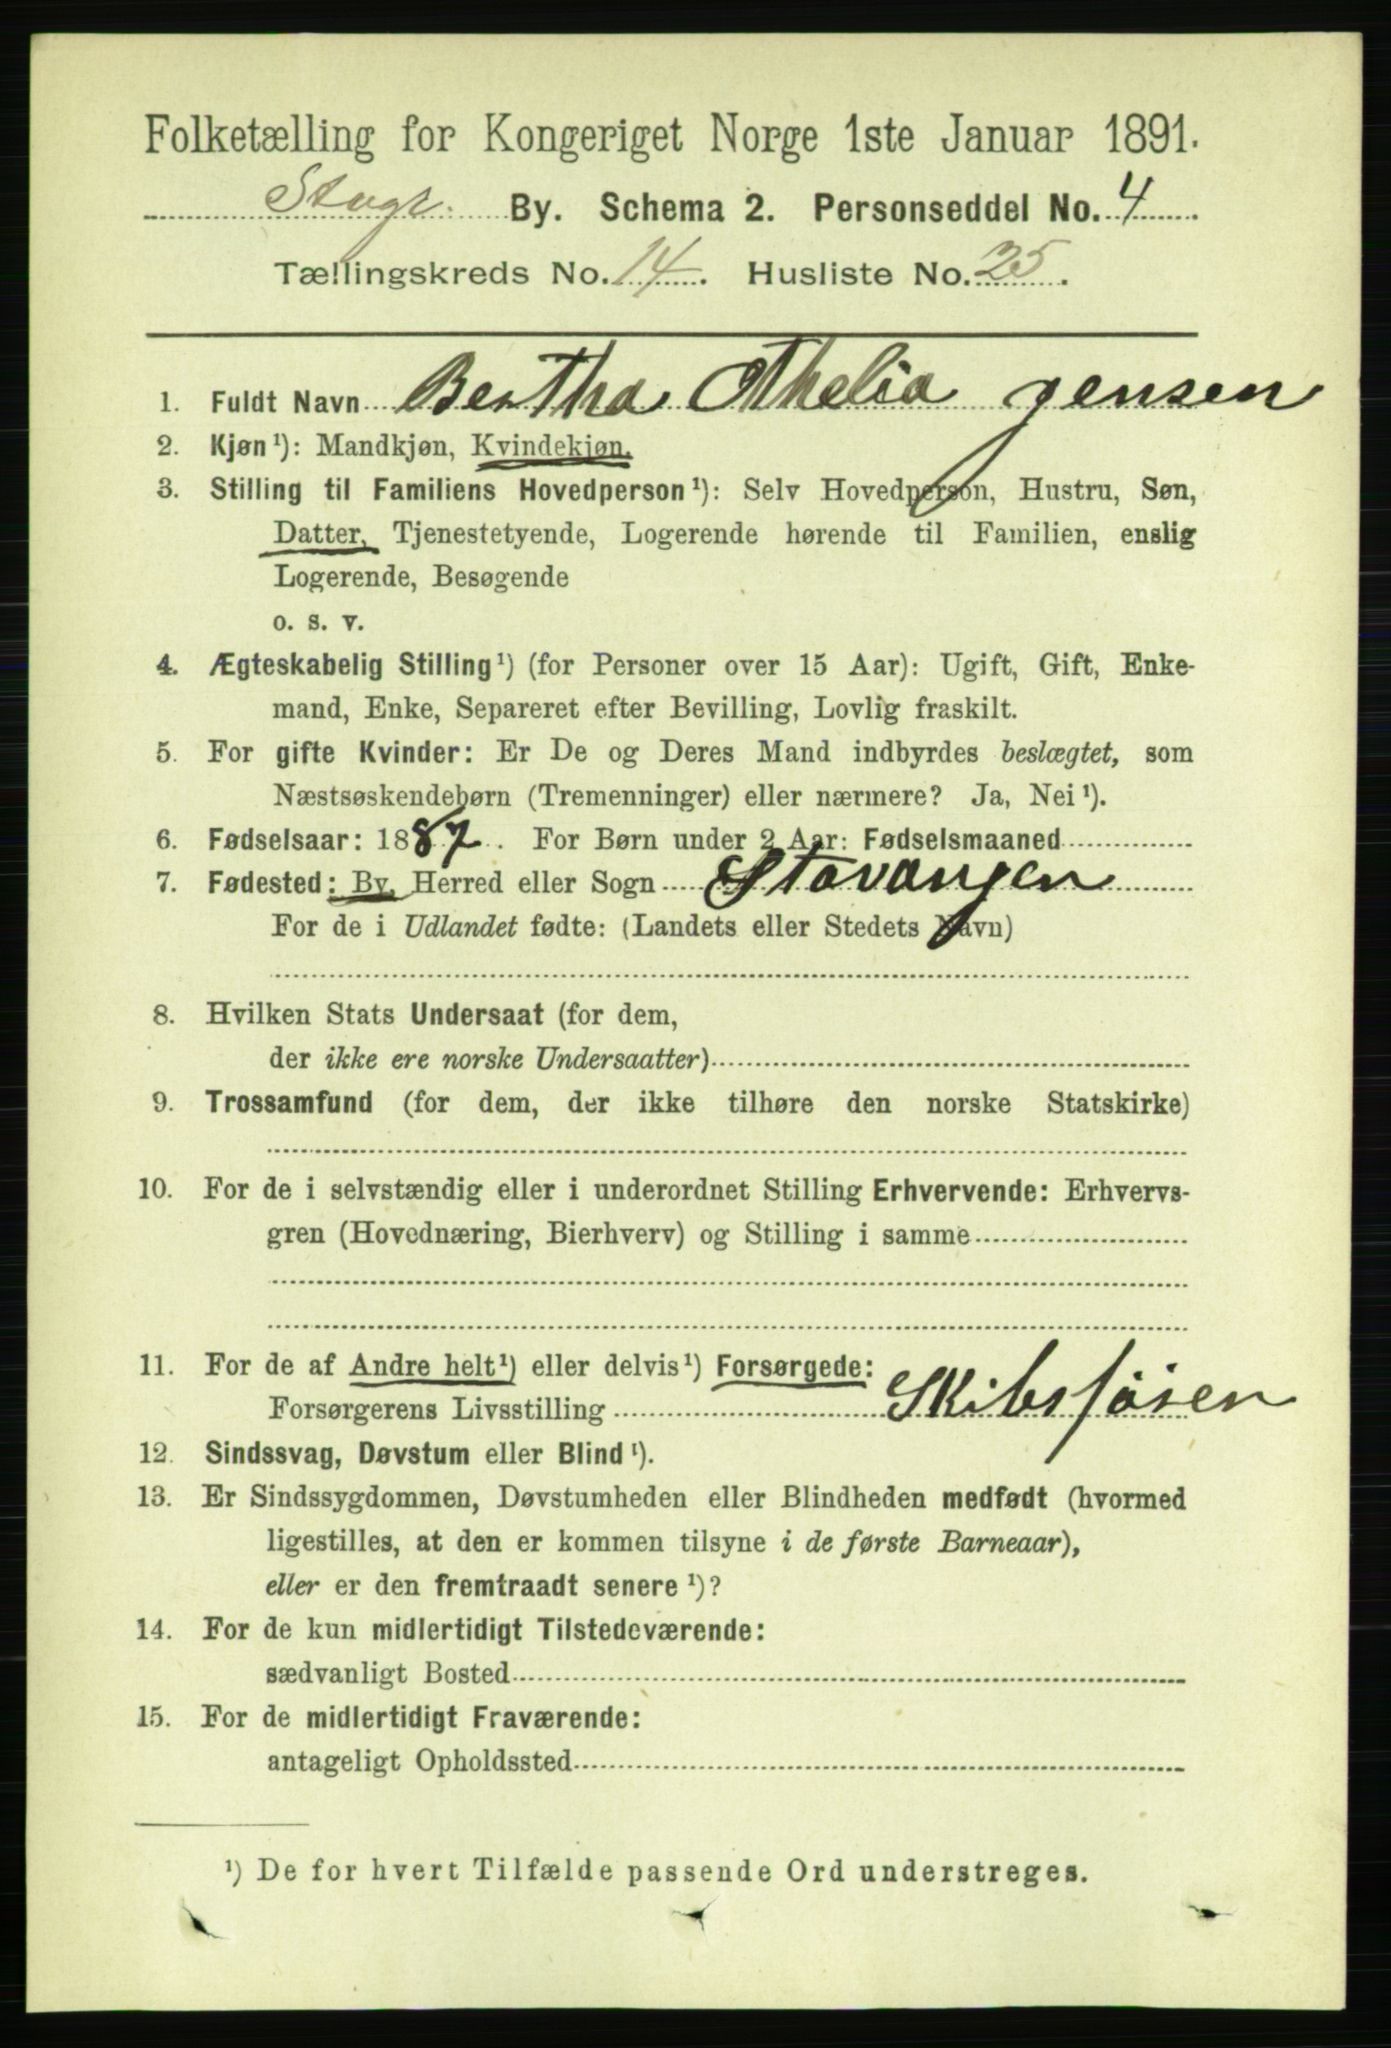 Folketælling for Kongeriget Norge 1ste Januar 1891.
Stvgr. By. Schema 2. Personseddel No. 4
Tællingskreds No. 14. Husliste No. 25.
1. Fuldt Navn Bertha Othelia Jensen
2. Kjøn¹): Mandkjøn, Kvindekjøn.
3. Stilling til Familiens Hovedperson¹): Selv Hovedperson, Hustru, Søn,
Datter, Tjenestetyende, Logerende hørende til Familien, enslig
Logerende, Besøgende
o. s. v.
4. Ægteskabelig Stilling¹) (for Personer over 15 Aar): Ugift, Gift, Enke-
mand, Enke, Separeret efter Bevilling, Lovlig fraskilt.
5. For gifte Kvinder: Er De og Deres Mand indbyrdes beslægtet, som
Næstsøskendebørn (Tremenninger) eller nærmere? Ja, Nei¹).
6. Fødselsaar: 1887. For Børn under 2 Aar: Fødselsmaaned
7. Fødested: By, Herred eller Sogn Stavangen
For de i Udlandet fødte: (Landets eller Stedets Navn)
8. Hvilken Stats Undersaat (for dem,
der ikke ere norske Undersaatter)
9. Trossamfund (for dem, der ikke tilhøre den norske Statskirke)
10. For de i selvstændig eller i underordnet Stilling Erhvervende: Erhvervs-
gren (Hovednæring, Bierhverv) og Stilling i samme
11. For de af Andre helt¹) eller delvis¹) Forsørgede:
Forsørgerens Livsstilling Skibsføsen
12. Sindssvag, Døvstum eller Blind¹).
13. Er Sindssygdommen, Døvstumheden eller Blindheden medfødt (hvormed
ligestilles, at den er kommen tilsyne i de første Barneaar),
eller er den fremtraadt senere¹)?
14. For de kun midlertidigt Tilstedeværende:
sædvanligt Bosted
15. For de midlertidigt Fraværende:
antageligt Opholdssted
¹) De for hvert Tilfælde passende Ord understreges.